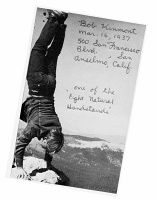 Bob Kinmont
Mar. 16, 1937
500 San Francisco
Blvd. San
Anselmo, Calif
'one of the
Eight Natural
Handstands'